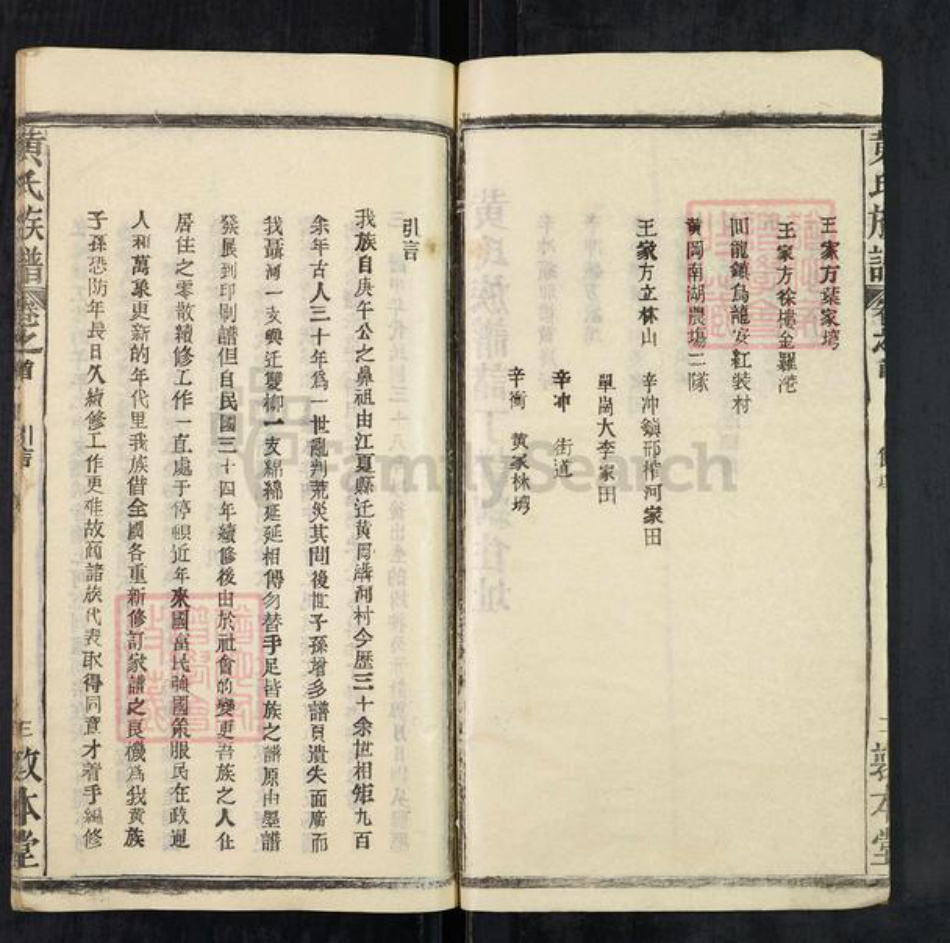 黃氏族譜
王家方葉家塆
王家方徐樓金羅港
回龍鎮烏龍安紅裝村
黃岡南湖農場二隊
王家方立林山 辛冲鎮邢榨河家田
單崗大李家田
辛冲 街道
辛衝 黃家林塆
引言
我族自庚午公之鼻祖由江夏縣迁黃岡溝河村今歷三十余世相矩九百
余年古人三十年為一世亂判荒災其間後世子孫增多譜頁潰失面廣而
我溝河一支與迁雙柳一支綿綿延延相傳勿替手足皆族之譜原由墨譜
發展到印刷譜但自民國三十四年續修後由於社會的變更吾族之人仕
居住之零散續修工作一直處于停頓近年來國富民強國策服民在政迴
人和萬象更新的年代里我族借全國各重新修訂家譜之良機為我黃族
子孫恐防年長日久續修工作更难故商諸族代表取得同意才着手編修
黃氏族譜 卷之首 引言 三 敦本堂
FamilySearch